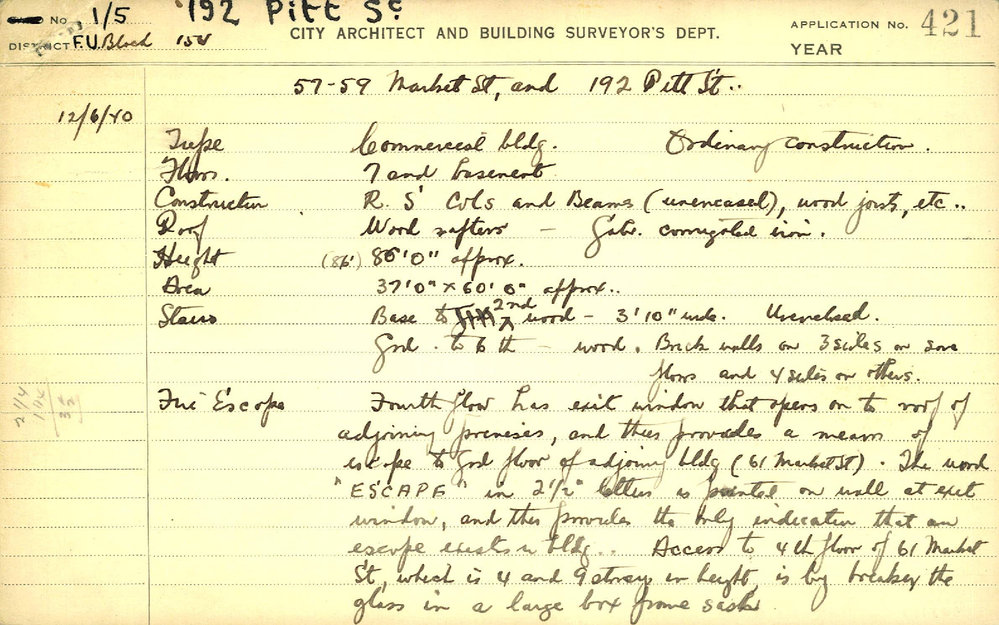 No. 1/5 192 Pitt St
DISTRICT F.U. Block 154 CITY ARCHITECT AND BUILDING SURVEYOR'S DEPT. APPLICATION No. 421
YEAR
57-59 Market St, and 192 Pitt St..
12/6/40
Type Commercial bldg. Ordinary construction.
Floors. 7 and basement
Construction R. S' Cols and Beams (unencased), wood joists, etc..
Roof Wood rafters — Galv. corrugated iron.
Height (86') 86'0" approx.
Area 37'0" x 60'0" approx..
Stairs Base to 2nd wood - 3'10" wide. Unenclosed.
Grd. to 6th — wood. Brick walls on 3 sides on some
floors and 4 sides on others.
Fire Escape Fourth floor has exit window that opens on to roof of
adjoining premises, and thus provides a means of
escape to Grd floor of adjoining bldg (61 Market St). The word
"ESCAPE" in 2½" letters is painted on wall at exit
window, and this provides the only indication that an
escape exists in bldg.. Access to 4th floor of 61 Market
St, which is 4 and 9 storeys in height, is by breaking the
glass in a large box frame sash.